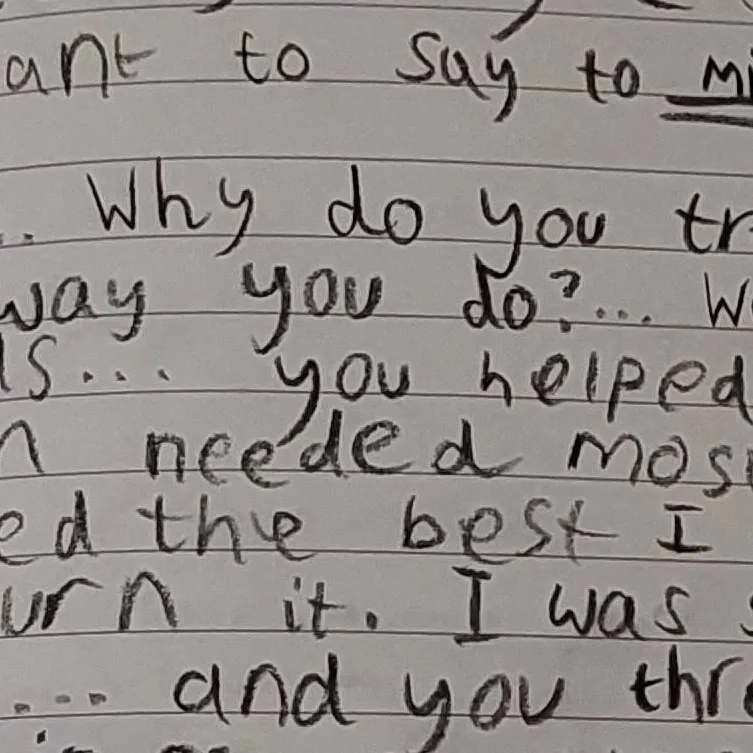 ant to say to Mi
.. Why do you tr
way you do?... W
ls... you helped
n needed mos
ed the best I
urn it. I was s
.... and you thr